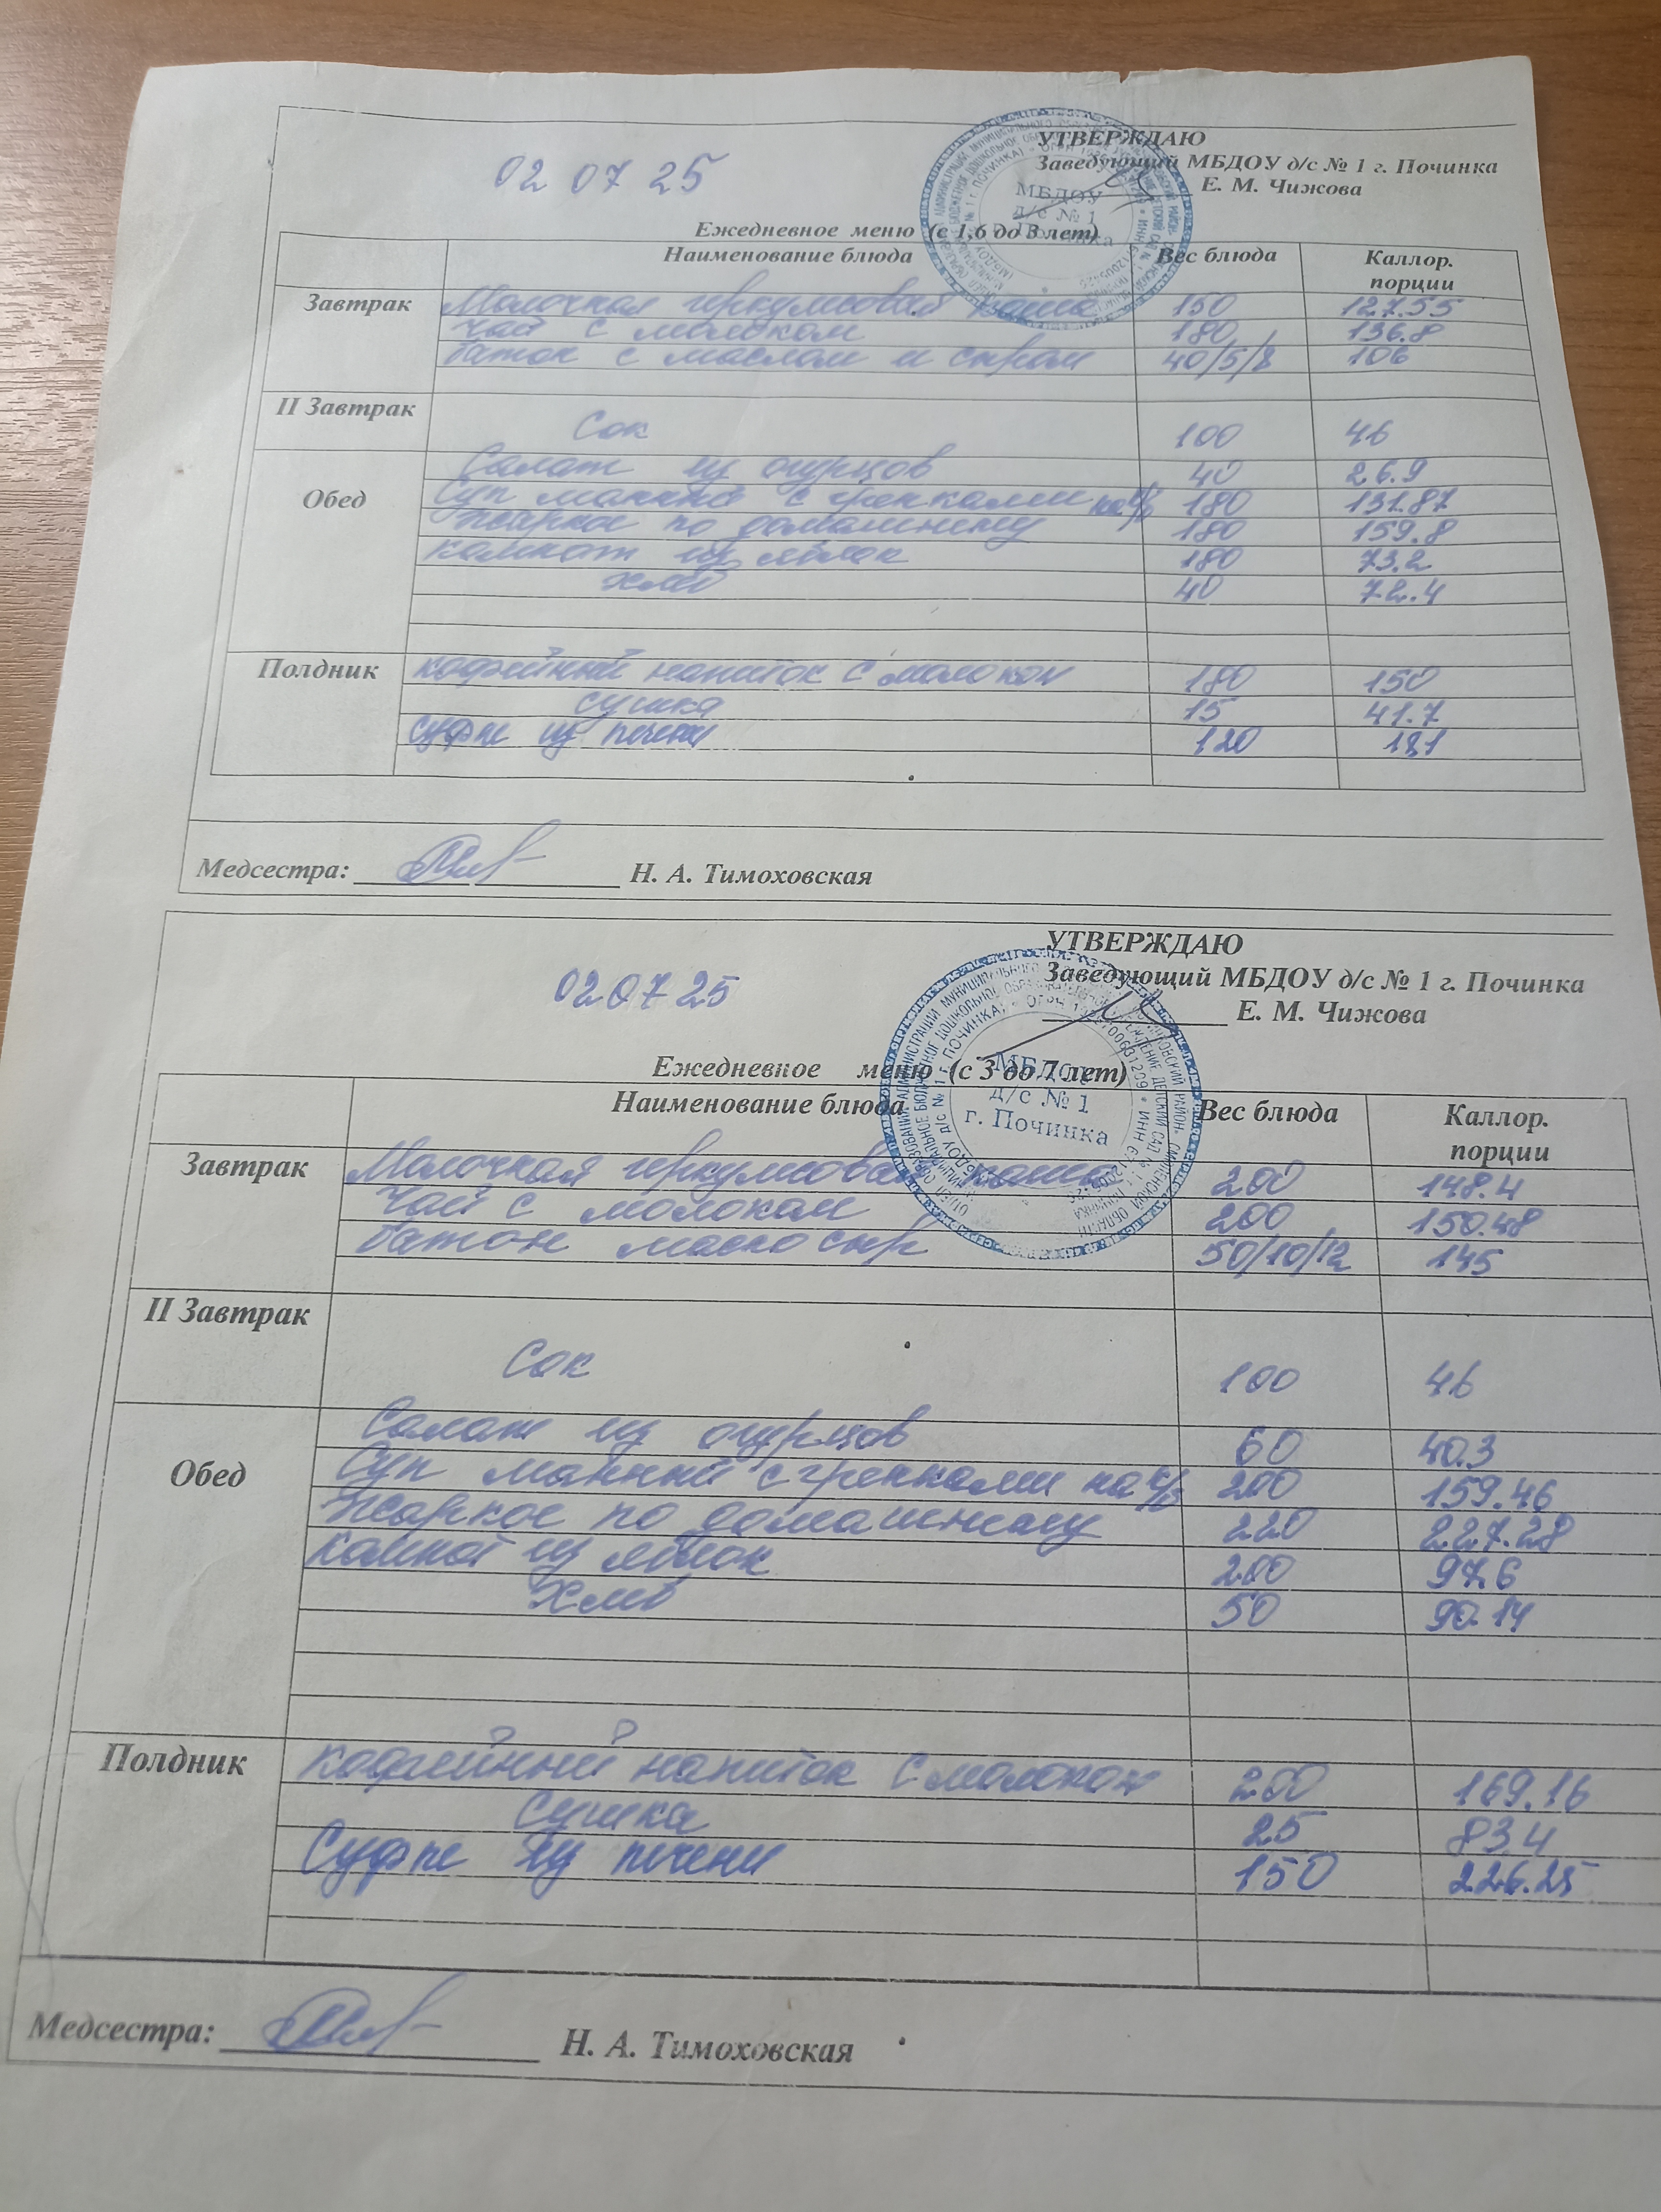 УТВЕРЖДАЮ
Заведующий МБДОУ д/с № 1 г. Починка
Е. М. Чижова
02 07 25
МБДОУ
д/с № 1
Ежедневное меню (с 1,6 до 3 лет)
Наименование блюда Вес блюда Каллор. порции
Завтрак Молочная геркулесовая каша 150 127.55
Чай с молоком 180 136.8
батон с маслом и сыром 40/5/8 106
II Завтрак
Сок 100 46
Салат из огурцов 40 26.9
Обед Суп манный с гренками на к/б 180 131.87
Жаркое по домашнему 180 159.8
компот из яблок 180 73.2
хлеб 40 72.4
Полдник кофейный напиток с молоком 180 150
сушка 15 41.7
суфле из печени 120 181
Медсестра: Н. А. Тимоховская
УТВЕРЖДАЮ
Заведующий МБДОУ д/с № 1 г. Починка
Е. М. Чижова
02 07 25
МБДОУ
д/с № 1
г. Починка
Ежедневное меню (с 3 до 7 лет)
Наименование блюда Вес блюда Каллор. порции
Завтрак Молочная геркулесовая каша 200 148.4
Чай с молоком 200 150.48
батон масло сыр 50/10/12 145
II Завтрак
Сок 100 46
Салат из огурцов 60 40.3
Обед Суп манный с гренками на к/б 200 159.46
Жаркое по домашнему 220 227.28
компот из яблок 200 97.6
Хлеб 50 90.14
Полдник кофейный напиток с молоком 200 169.16
Сушка 25 83.4
Суфле из печени 150 226.25
Медсестра: Н. А. Тимоховская